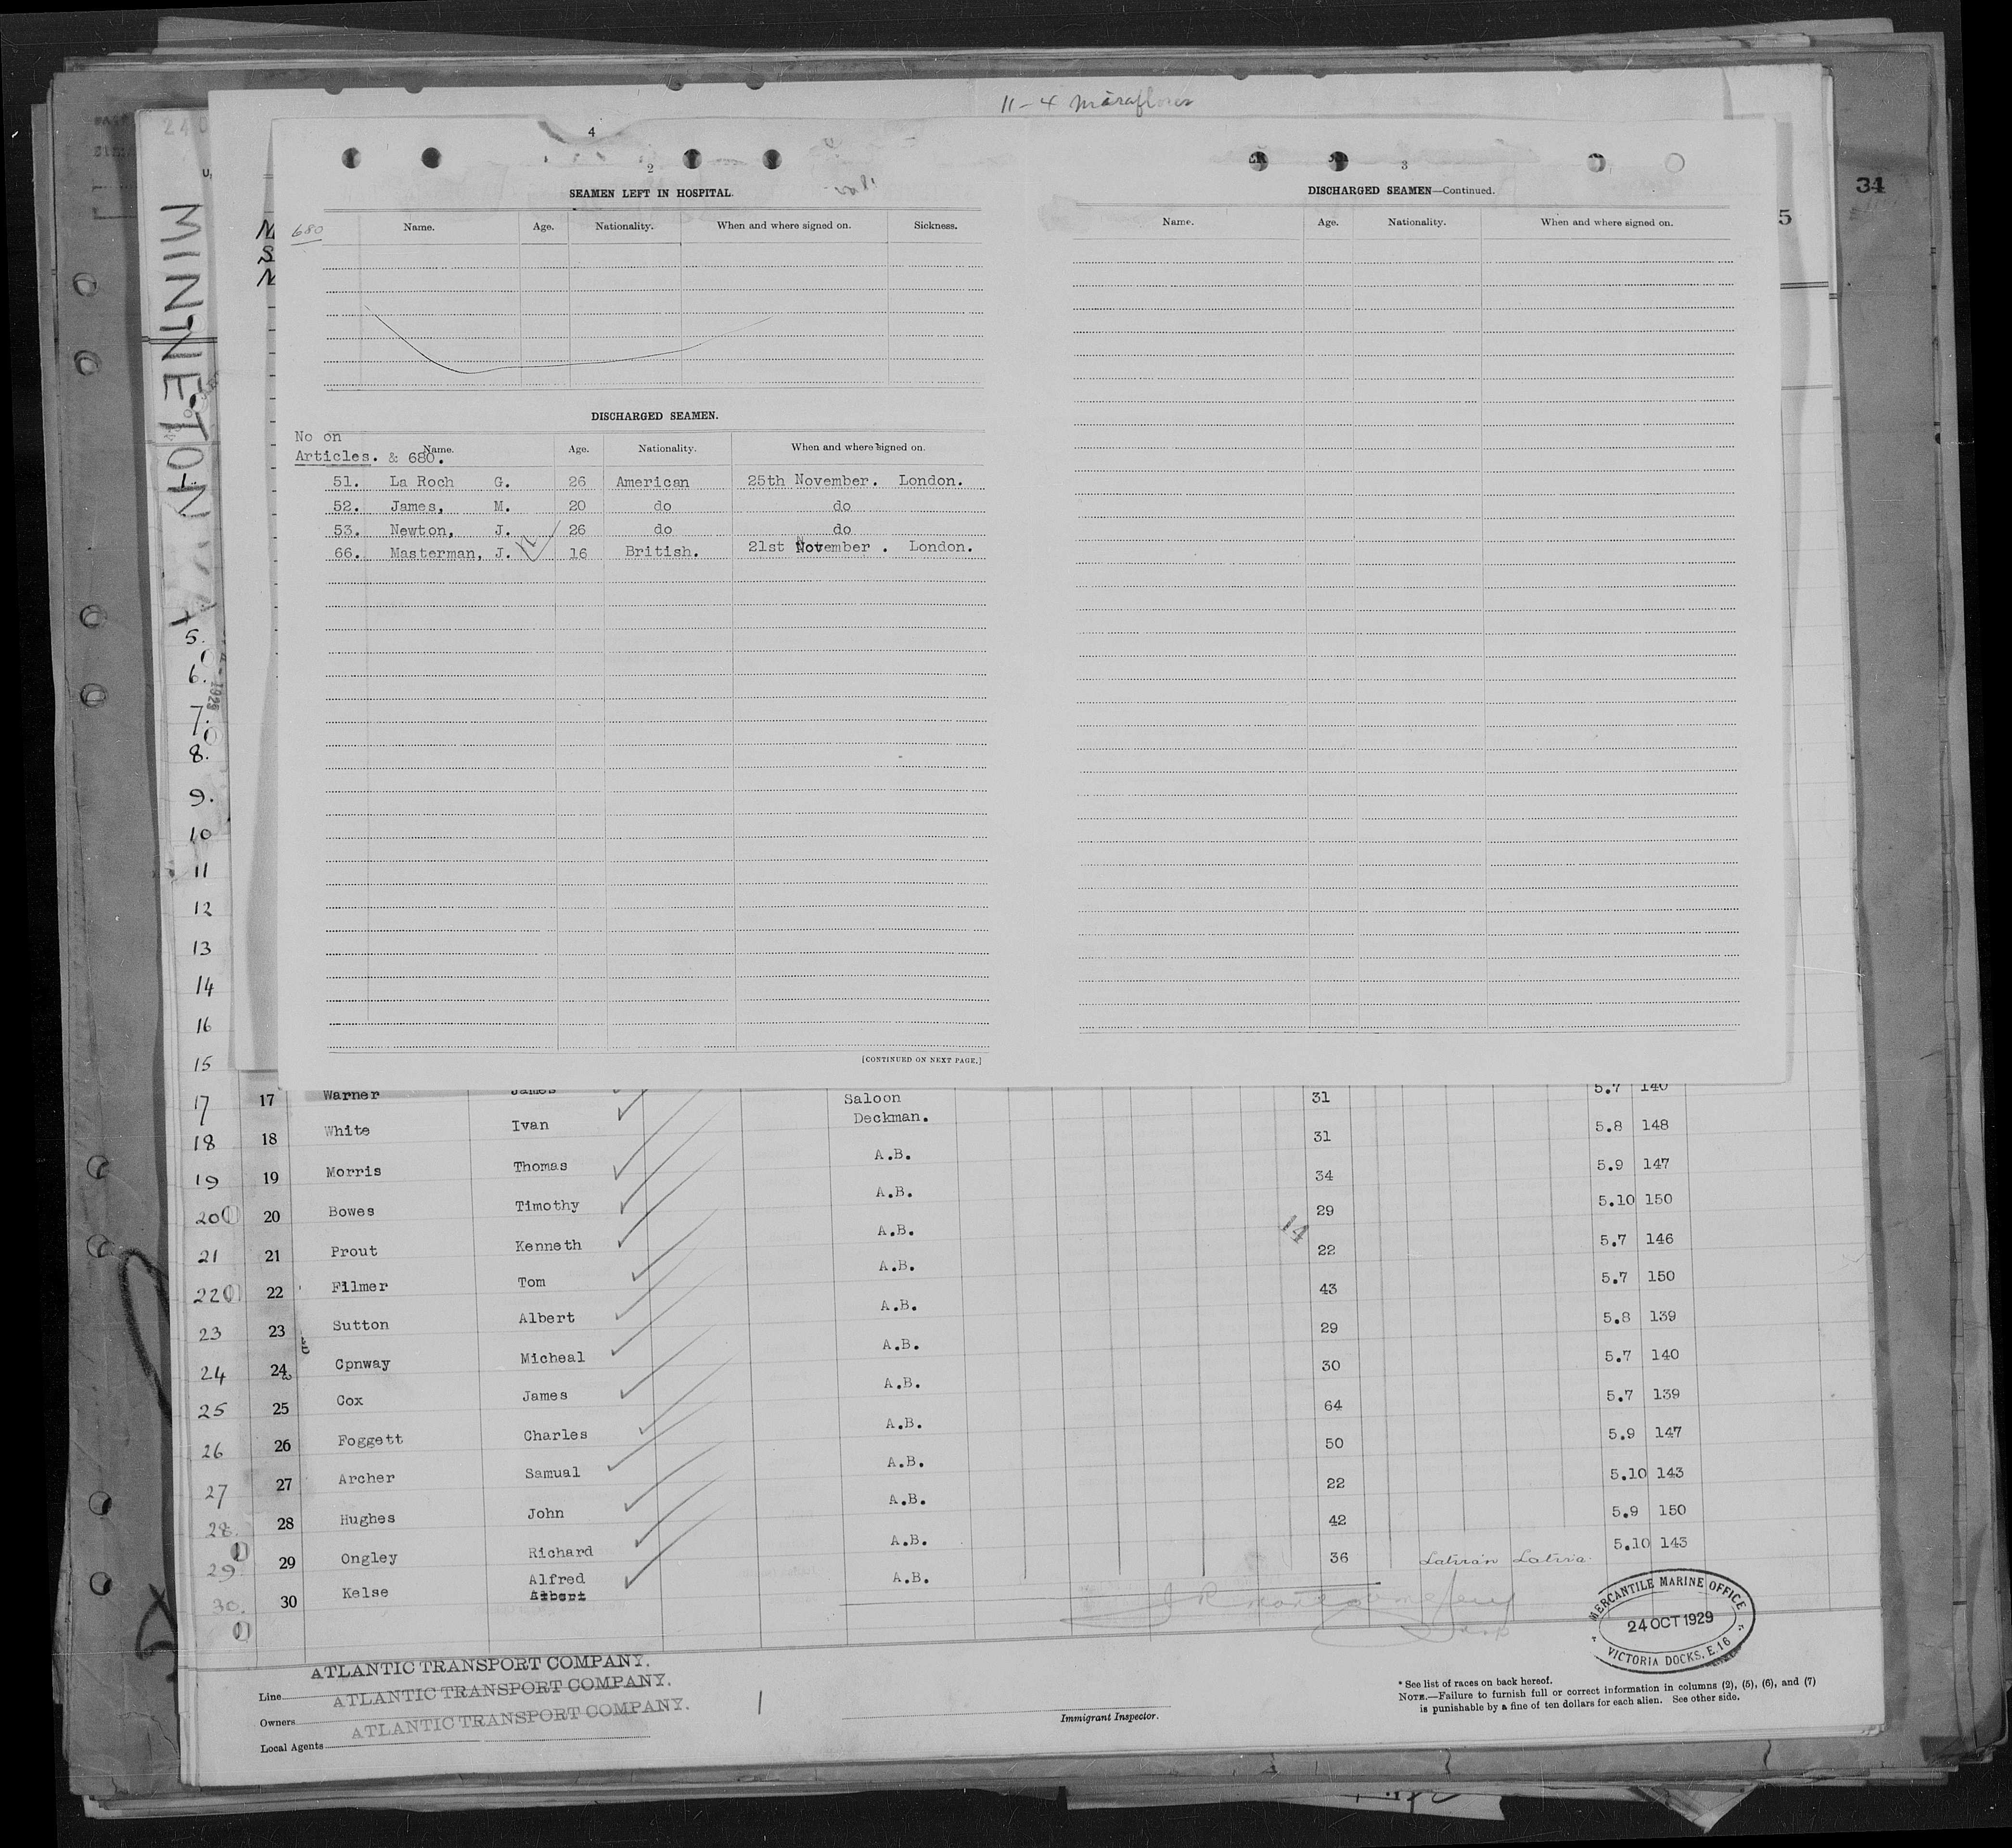 11-4 Miraflores
4
2
SEAMEN LEFT IN HOSPITAL.
680
Name. Age. Nationality. When and where signed on. Sickness.
DISCHARGED SEAMEN.
No on
Articles. & 680. Name. Age. Nationality. When and where signed on.
51. La Roch G. 26 American 25th November. London.
52. James, M. 20 do do
53. Newton, J. 26 do do
66. Masterman, J. 16 British. 21st November. London.
[CONTINUED ON NEXT PAGE.]
3
DISCHARGED SEAMEN—Continued.
Name. Age. Nationality. When and where signed on.
34
5
MINNETON
5.
6.
7.
8.
9.
10
11
12
13
14
16
15
17 17 Warner James Saloon 31 5.7 140
18 18 White Ivan Deckman. 31 5.8 148
19 19 Morris Thomas A.B. 34 5.9 147
20 20 Bowes Timothy A.B. 29 5.10 150
14
21 21 Prout Kenneth A.B. 22 5.7 146
22 22 Filmer Tom A.B. 43 5.7 150
23 23 Sutton Albert A.B. 29 5.8 139
24 24 Cpnway Micheal A.B. 30 5.7 140
25 25 Cox James A.B. 64 5.7 139
26 26 Foggett Charles A.B. 50 5.9 147
27 27 Archer Samual A.B. 22 5.10 143
28. 28 Hughes John A.B. 42 5.9 150
29 29 Ongley Richard A.B. 36 Latvian Latvia. 5.10 143
30. 30 Kelse Alfred A.B.
Albert
MERCANTILE MARINE OFFICE
24 OCT 1929
VICTORIA DOCKS, E.16
Line ATLANTIC TRANSPORT COMPANY.
Owners ATLANTIC TRANSPORT COMPANY.
Local Agents ATLANTIC TRANSPORT COMPANY.
Immigrant Inspector.
* See list of races on back hereof.
NOTE.—Failure to furnish full or correct information in columns (2), (5), (6), and (7)
is punishable by a fine of ten dollars for each alien. See other side.